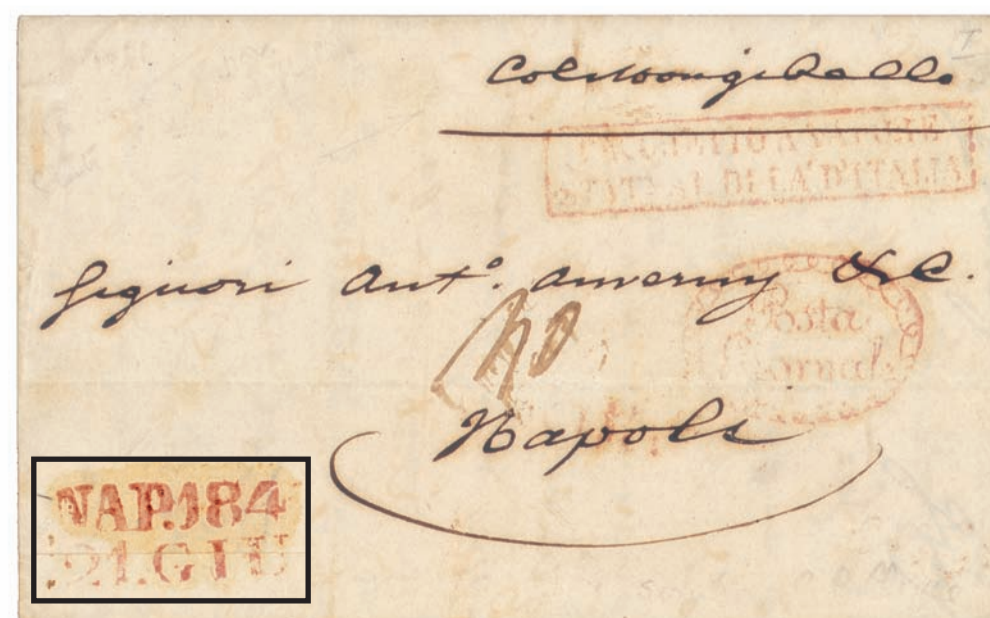 Col Mongibello
STATI AL DI LÀ D'ITALIA
Signori Ant°. Amermy & C.
Posta
Napoli
NAP.184
21.GIU